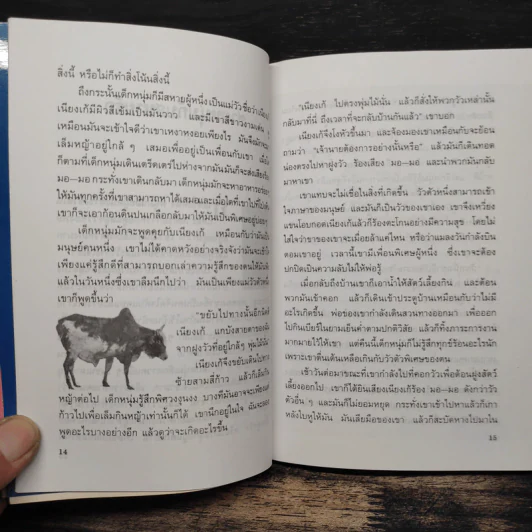 สิ่งนี้ หรือไม่ก็ทำสิ่งโน้นสิ่งนี้
ถึงกระนั้นเด็กหนุ่มก็มีสหายผู้หนึ่งเป็นแม่วัวชื่อว่าเนียง
เนียงเก้มีผิวสีเข้มเป็นมันวาว และมีเขาสีขาวงามเด่น
เหมือนมันจะเข้าใจดีว่าเขาเหงาหงอยเพียงไร มันจึงมัก
เล็มหญ้าอยู่ใกล้ ๆ เสมอเพื่ออยู่เป็นเพื่อนกับเขา
ก็ตามที่เด็กหนุ่มเดินเตร็ดเตร่ไปห่างจากมันมันก็จะส่งเสียง
มอ—มอ กระทั่งเขาเดินกลับมา เด็กหนุ่มมักจะหาอาหารอร่อย
ให้มันทุกครั้งที่เขาสามารถหาได้เสมอและเมื่อใดที่เขาไป
เขาก็จะเอาก้อนดินปนเกลือกลับมาให้มันเป็นพิเศษอยู่
เด็กหนุ่มมักจะพูดคุยกับเนียงเก้ เหมือนกับว่ามันเป็น
มนุษย์คนหนึ่ง เขาไม่ได้คาดหวังอย่างจริงจังว่ามันจะเข้าใจ
เพียงแค่รู้สึกดีที่สามารถบอกเล่าความรู้สึกของตนให้มันฟัง
แล้วในวันหนึ่งซึ่งเขาลืมนึกไปว่า มันเป็นเพียงแม่วัวตัวหนึ่ง
เขาก็พูดขึ้นว่า
"ขยับไปทางนั้นอีกนิดสิ
เนียงเก้ แกบังสายตาของฉัน
จากฝูงวัวที่อยู่ใกล้ๆ พุ่มไม้นั่น"
เนียงเก้จึงขยับเดินไปทาง
ซ้ายสามสี่ก้าว แล้วก็เล็ม
หญ้าต่อไป เด็กหนุ่มรู้สึกพิศวงงุนงง บางทีมันอาจจะเพียง
ก้าวไปเพื่อเล็มกินหญ้าเท่านั้นก็ได้ เขานึกอยู่ในใจ ฉันจะลอง
พูดอะไรบางอย่างอีก แล้วดูว่าจะเกิดอะไรขึ้น
14
"เนียงเก้ ไปตรงพุ่มไม้นั่น แล้วก็สั่งให้พวกวัวเหล่านั้น
กลับมาที่นี่ ถึงเวลาที่จะกลับบ้านกันแล้ว" เขาบอก
เนียงเก้จึงโงหัวขึ้นมา และจ้องมองเขาเหมือนกับจะย้อน
ถามว่า "เจ้านายต้องการอย่างนั้นหรือ" แล้วมันก็เดินทอด
น่องตรงไปหาฝูงวัว ร้องเสียง มอ—มอ และนำพวกมันกลับ
มาหาเขา
เขาแทบจะไม่เชื่อในสิ่งที่เกิดขึ้น วัวตัวหนึ่งสามารถเข้า
ใจภาษาของมนุษย์ และมันก็เป็นวัวของเขาเอง เขาจึงเหวี่ยง
แขนโอบกอดเนียงเก้แล้วก็ร้องตะโกนอย่างมีความสุข โดยไม่
ใส่ใจว่าขาของเขาจะเมื่อยล้าแค่ไหน หรือว่าแมลงวันกำลังบิน
ตอมเขาอยู่ เวลานี้เขามีเพื่อนพิเศษผู้หนึ่ง ซึ่งเขาจะต้อง
ปกปิดเป็นความลับไม่ให้พ่อรู้
เมื่อกลับถึงบ้านเขาก็เอาน้ำให้สัตว์เลี้ยงกิน และต้อน
พวกมันเข้าคอก แล้วก็เดินเข้าประตูบ้านเหมือนกับว่าไม่มี
อะไรเกิดขึ้น พ่อของเขากำลังเดินสวนทางออกมา เพื่อออก
ไปกินเบียร์ในยามเย็นค่ำตามปกติวิสัย แล้วก็ทิ้งภาระการงาน
มากมายไว้ให้เขา แต่คืนนี้เด็กหนุ่มก็ไม่รู้สึกทุกข์ร้อนอะไรนัก
เพราะเขาตื่นเต้นเหลือเกินกับวัวตัวพิเศษของตน
เช้าวันต่อมาขณะที่เขากำลังไปที่คอกวัวเพื่อต้อนฝูงสัตว์
เลี้ยงออกไป เขาก็ได้ยินเสียงเนียงเก้ร้อง มอ—มอ ดังกว่าวัว
ตัวอื่น ๆ และมันก็ไม่ยอมหยุด กระทั่งเขาเข้าไปหาแล้วก็เกา
หลังใบหูให้มัน มันเลียมือของเขา แล้วก็สะบัดหางไปมาใน
15